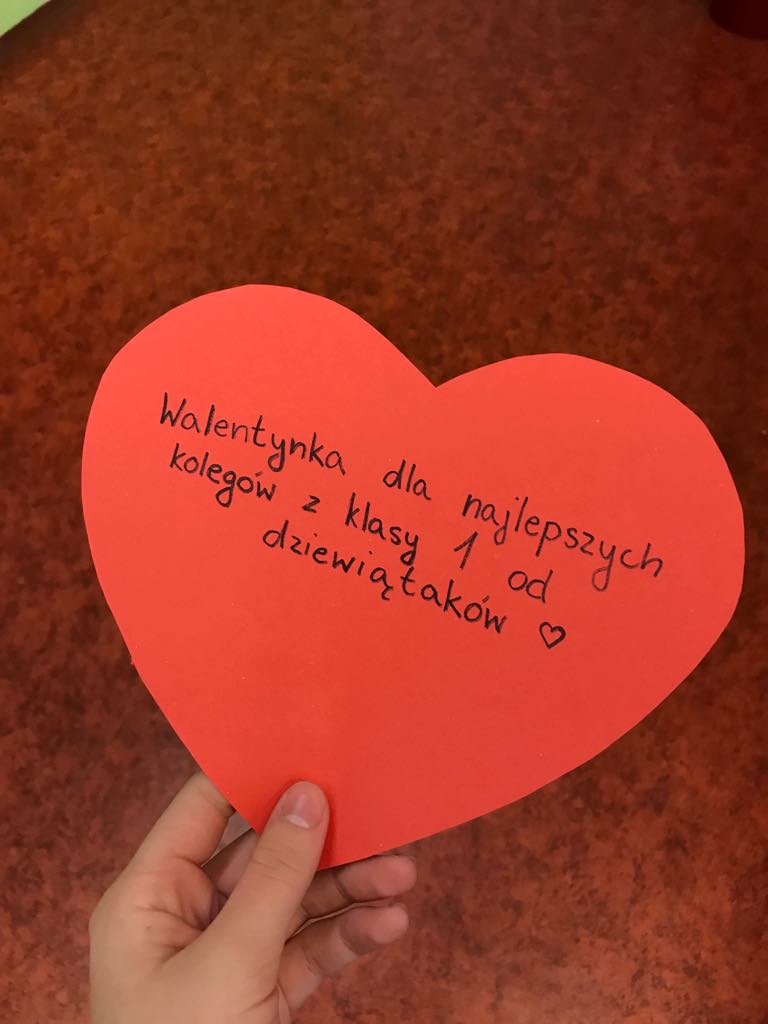 Walentynka dla najlepszych
kolegów z klasy 1 od
dziewiątaków ♡